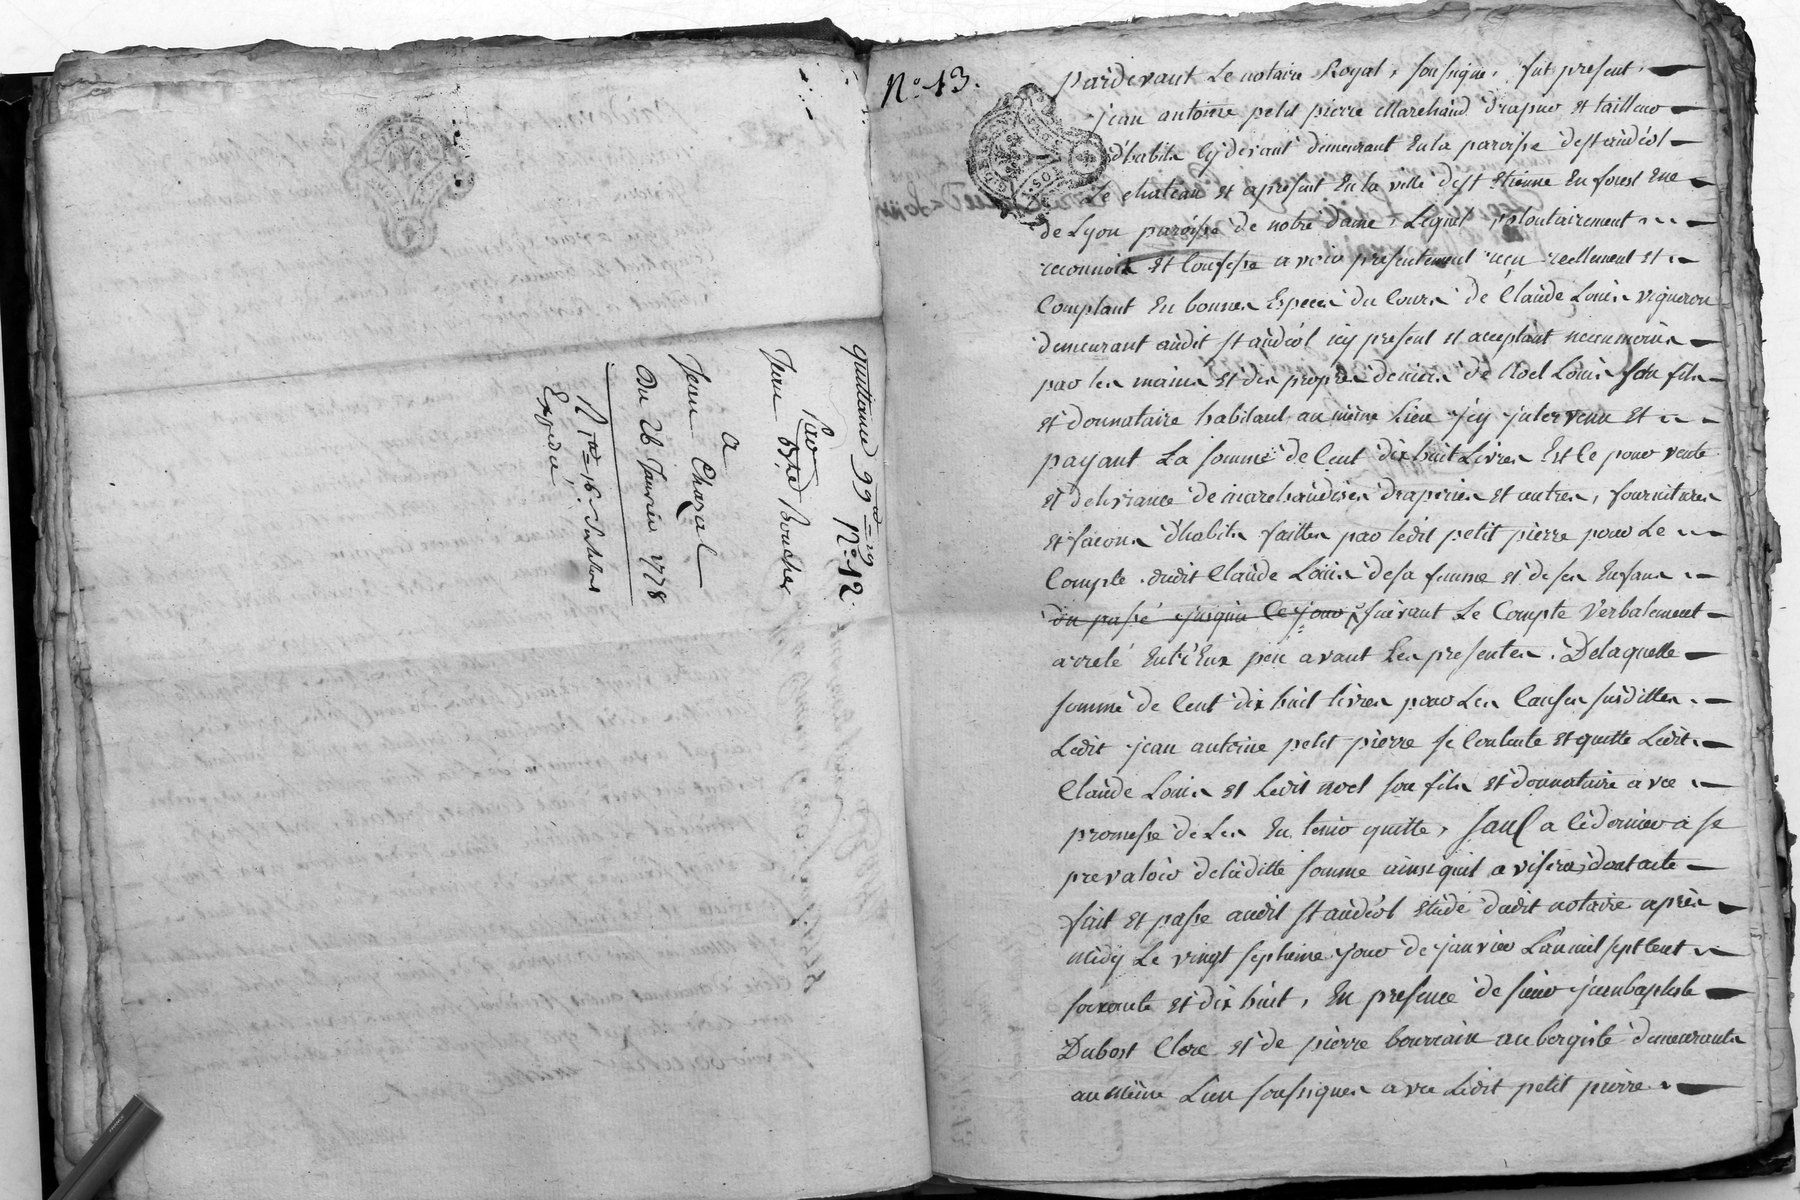 quittance 99# 19s N° 12.
par
Jean Bte Boucher
a
Jean Chazal
Du 26 Janvier 1778
Expedié
N° 13.
pardevant Le notaire Royal, soussigné, fut present
jean antoine petit pierre Marchand drapier et tailleur
d'habits cydevant demeurant en la paroisse de st andéol
Le chateau et apresent en la ville de st Etienne en forest
de Lyon paroisse de notre dame, Lequel volontairement
reconnoit et Confesse avoir presentement reçu reellement et
Comptant En bonnes Especes du Cours de Claude Louis vigneron
demeurant audit st andéol icy present et acceptant neanmoins
par les mains et des propres deniers de Noel Louis son fils
et donnataire habitant au même Lieu jcy jntervenu et
payant La somme de Cent dix huit Livres Est Ce pour vente
et delivrance de marchandises draperies et autres, fournitures
et façons d'habits faittes par ledit petit pierre pour Le
Compte dudit Claude Louis de sa femme et de ses Enfans
du passé jusqua Ce jour suivant Le Compte verbalement
arreté Entr'Eux peu avant Les presentes. De laquelle
somme de Cent dix huit livres pour Les Causes susdittes
Ledit jean antoine petit pierre se Contente et quitte Ledit
Claude Louis et Ledit noel son fils et donnataire avec
promesse de Les En tenir quitte, sauf a Ce dernier a se
prevaloir de laditte somme ainsi quil avisera, dont acte
fait et passé audit st andéol Etude dudit notaire après
midy Le vingt septieme jour de janvier L'an mil sept Cent
soixante et dix huit, En presence de sieur jean baptiste
Dubost Clerc et de pierre bourrain aubergiste demeurants
au même Lieu soussignés avec Ledit petit pierre